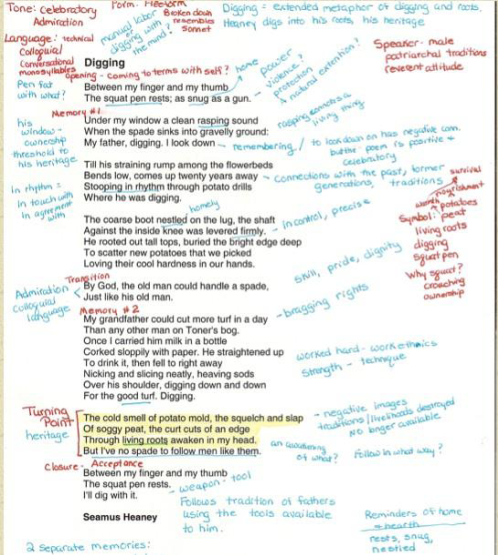 Tone: Celebratory
Admiration
Form: Freeform
Broken down
resembles
Sonnet
Digging = extended metaphor of digging and roots.
Heaney digs into his roots, his heritage
Language: technical
Colloquial
Conversational
monosyllables
manual labor
digging with
the mind?
Speaker- male
patriarchal traditions
reverent attitude
Digging
Opening - coming to terms with self?
home
power
violence?
protection
A natural extention?
Pen fat
with what?
Between my finger and my thumb
The squat pen rests; as snug as a gun.
Memory #1
Under my window a clean rasping sound
When the spade sinks into gravelly ground:
My father, digging. I look down
rasping connotes a
living thing
remembering / to look down on has negative conn.
but the poem is positive +
celebratory
his
window -
ownership
threshold to
his heritage
Till his straining rump among the flowerbeds
Bends low, comes up twenty years away
Stooping in rhythm through potato drills
Where he was digging.
connections with the past, former
generations, traditions
survival
nourishment
in rhythm =
in touch with
in agreement
with
homely
potatoes
Symbol: peat
living roots
digging
squat pen
Why squat?
crouching
ownership
The coarse boot nestled on the lug, the shaft
Against the inside knee was levered firmly.
He rooted out tall tops, buried the bright edge deep
To scatter new potatoes that we picked
Loving their cool hardness in our hands.
in control, precise
skill, pride, dignity
Transition
Admiration
Colloquial
language
By God, the old man could handle a spade,
Just like his old man.
bragging rights
Memory #2
My grandfather could cut more turf in a day
Than any other man on Toner's bog.
Once I carried him milk in a bottle
Corked sloppily with paper. He straightened up
To drink it, then fell to right away
Nicking and slicing neatly, heaving sods
Over his shoulder, digging down and down
For the good turf. Digging.
worked hard - work ethics
strength - technique
Turning
Point
heritage
The cold smell of potato mold, the squelch and slap
Of soggy peat, the curt cuts of an edge
Through living roots awaken in my head.
But I've no spade to follow men like them.
- negative images
traditions/livelihoods destroyed
No longer available
an awakening
of what?
Follow in what way?
Closure - Acceptance
Between my finger and my thumb
The squat pen rests.
I'll dig with it.
- weapon - tool
Follows tradition of fathers
using the tools available
to him.
Seamus Heaney
Reminders of home
+ hearth
nests, snug,
nestled
2 separate memories: